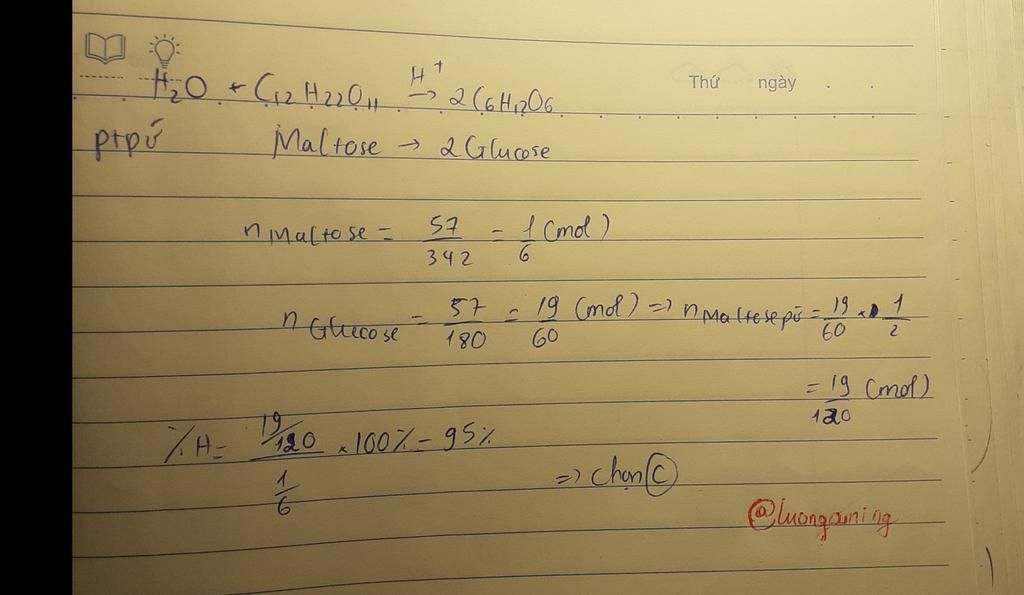 Thứ ngày . .
H₂O + C₁₂H₂₂O₁₁ →(H⁺) 2C₆H₁₂O₆
ptpứ Maltose → 2Glucose
n Maltose = 57/342 = 1/6 (mol)
n Glucose = 57/180 = 19/60 (mol) => n Maltose pứ = 19/60 × 1/2
= 19/120 (mol)
%H = (19/120)/(1/6) × 100% = 95%
=> Chọn C
@luongouning